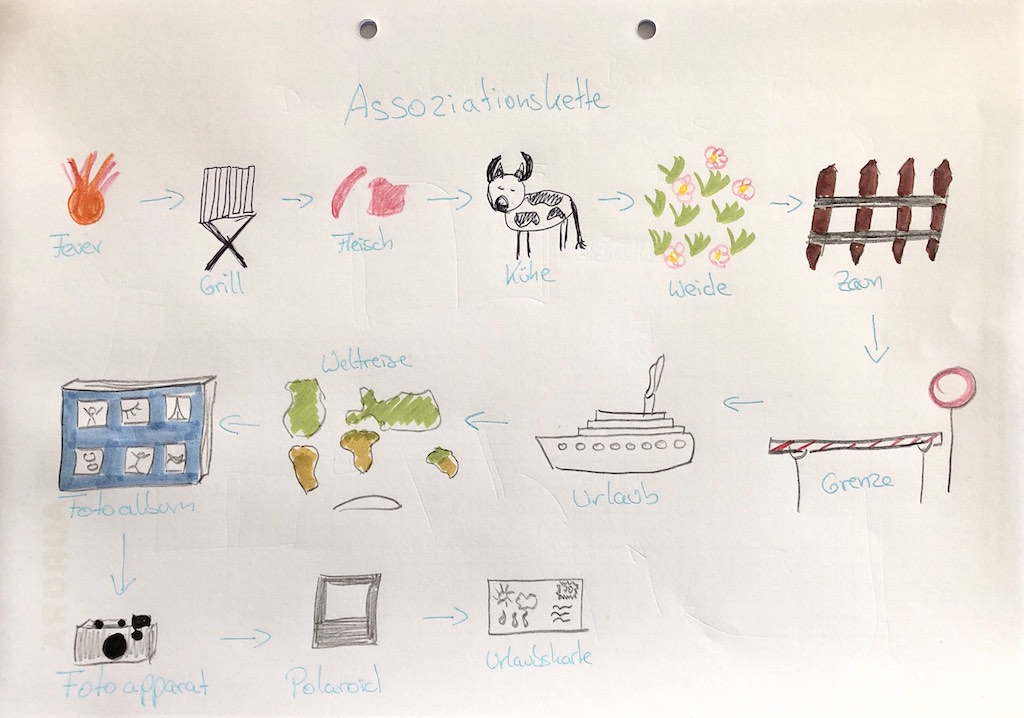 Assoziationskette
Feuer
Grill
Fleisch
Kühe
Weide
Zaun
Grenze
Urlaub
Weltreise
Fotoalbum
Fotoapparat
Polaroid
Urlaubskarte